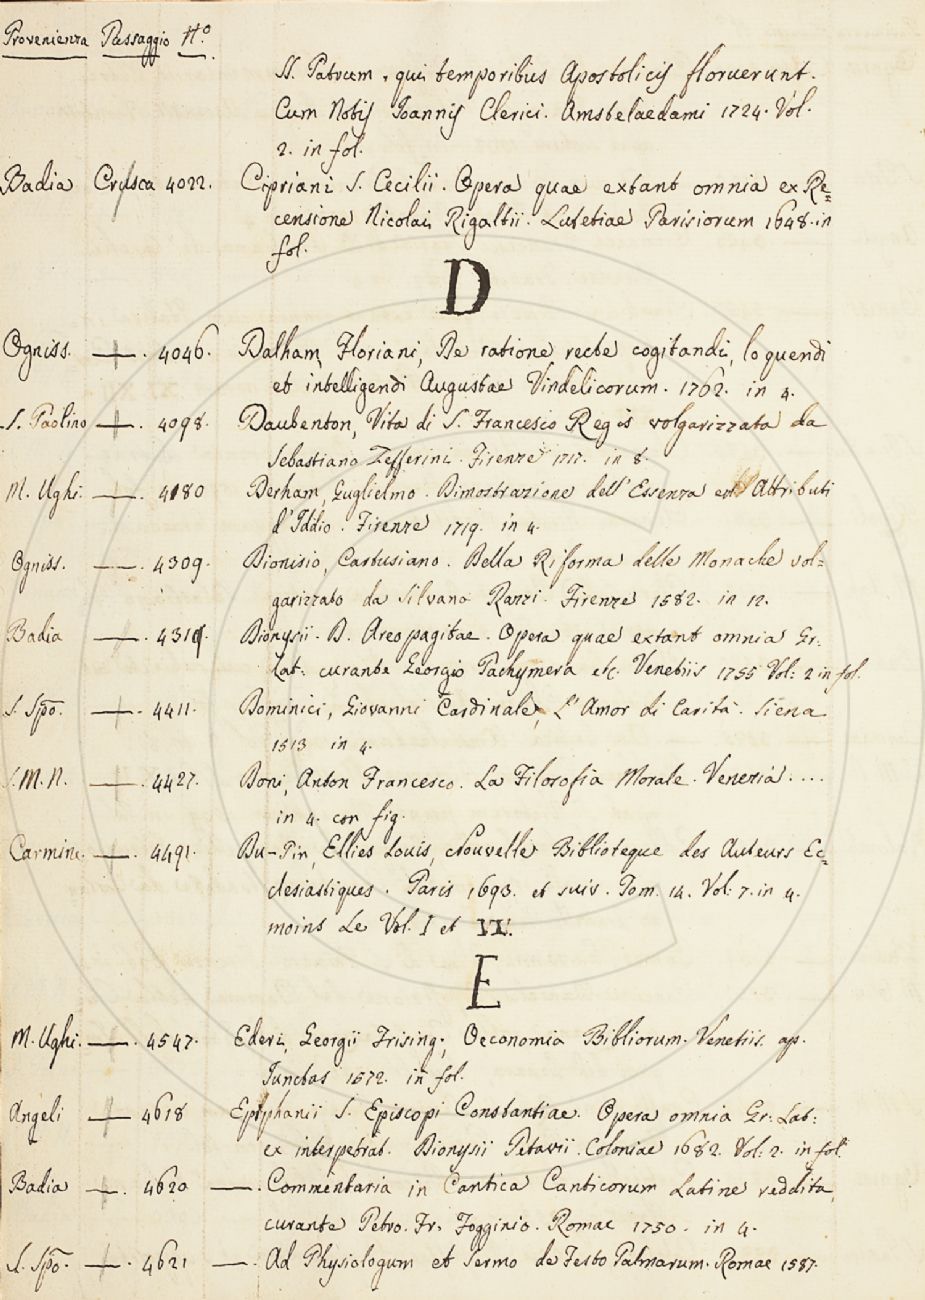 Provenienza Passaggio N.º
SS. Patrum, qui temporibus Apostolicis floruerunt.
Cum Notis Joannis Clerici. Amstelaedami 1724. Vol.
2. in fol.
Badia Crusca 4022. Cipriani S. Cecilii. Opera quae extant omnia ex Re=
censione Nicolai Rigaltii. Lutetiae Parisiorum 1648. in
fol.
D
Ogniss. — . 4046. Dalham, Floriani, De ratione recte cogitandi, loquendi
et intelligendi Augustae Vindelicorum. 1762. in 4.
S. Paolino — . 4098. Daubenton, Vita di S. Francesco Regis volgarizzata da
Sebastiano Zefferini. Firenze 1717. in 8.
M. Ughi. — . 4180 Derham, Guglielmo. Dimostrazione dell'Essenza ed Attributi
d'Iddio. Firenze 1719. in 4.
Ogniss. — . 4309. Dionisio, Cartusiano. Della Riforma delle Monache vol=
garizzato da Silvano Razzi. Firenze 1582. in 12.
Badia — . Dionysii. D. Areopagitae. Opera quae extant omnia Gr:
Lat: curante Georgio Pachymera etc. Venetiis 1755 Vol: 2 in fol.
S. Spō. — . 4411. Dominici, Giovanni Cardinale, L'Amor di Carità. Siena
1513 in 4.
S. M. N. — . 4427. Doni, Anton Francesco. La Filosofia Morale. Venezia....
in 4. con fig.
Carmine. — . 4491. Du-Pin, Ellies Louis, Nouvelle Biblioteque des Auteurs Ec=
clesiastiques. Paris 1693. et suiv. Tom. 14. Vol: 7. in 4.
moins Le Vol. I et VI.
E
M. Ughi. — . 4547. Ederi, Georgii Frising., Oeconomia Bibliorum. Venetiis. ap.
Junctas 1572. in fol.
Angeli — . 4618 Epiphanii S. Episcopi Constantiae. Opera omnia Gr: Lat:
ex interpetrat. Dionysii Petavii. Coloniae 1682. Vol: 2. in fol.
Badia — . 4620 — . Commentaria in Cantica Canticorum Latine reddita,
curante Petro. Fr. Fogginio. Romae 1750. in 4.
S. Spō. — . 4621 — . Ad Physiologum et Sermo de Festo Palmarum. Romae 1587.